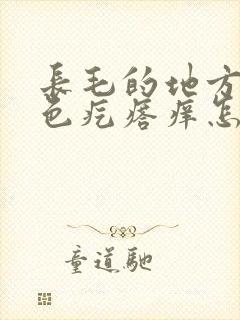 長毛的地方
色疙瘩痒怎
童道馳